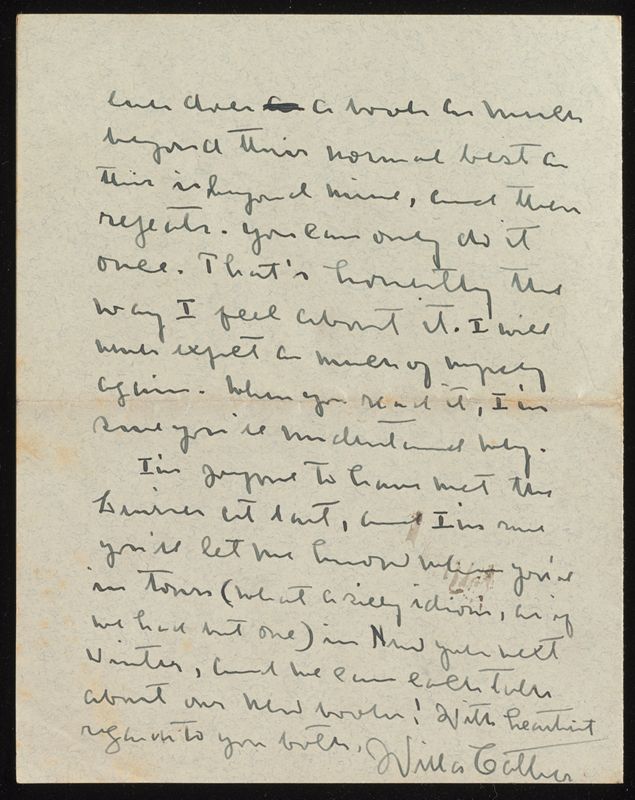 ever does a a book as much
beyond their normal best as
this is beyond mine, and then
repeats. You can only do it
once. That's honestly the
way I feel about it. I will
never expect as much of myself
again. When you read it, I'm
sure you'll understand why.
I'm joyous to have met the
at last, and I'm sure
you'll let me know when you're
in town (what a silly idiom, as if
we had but one) in New York next
Winter, and we can each talk
about our new books! With heartiest
regards to you both,
Willa Cather